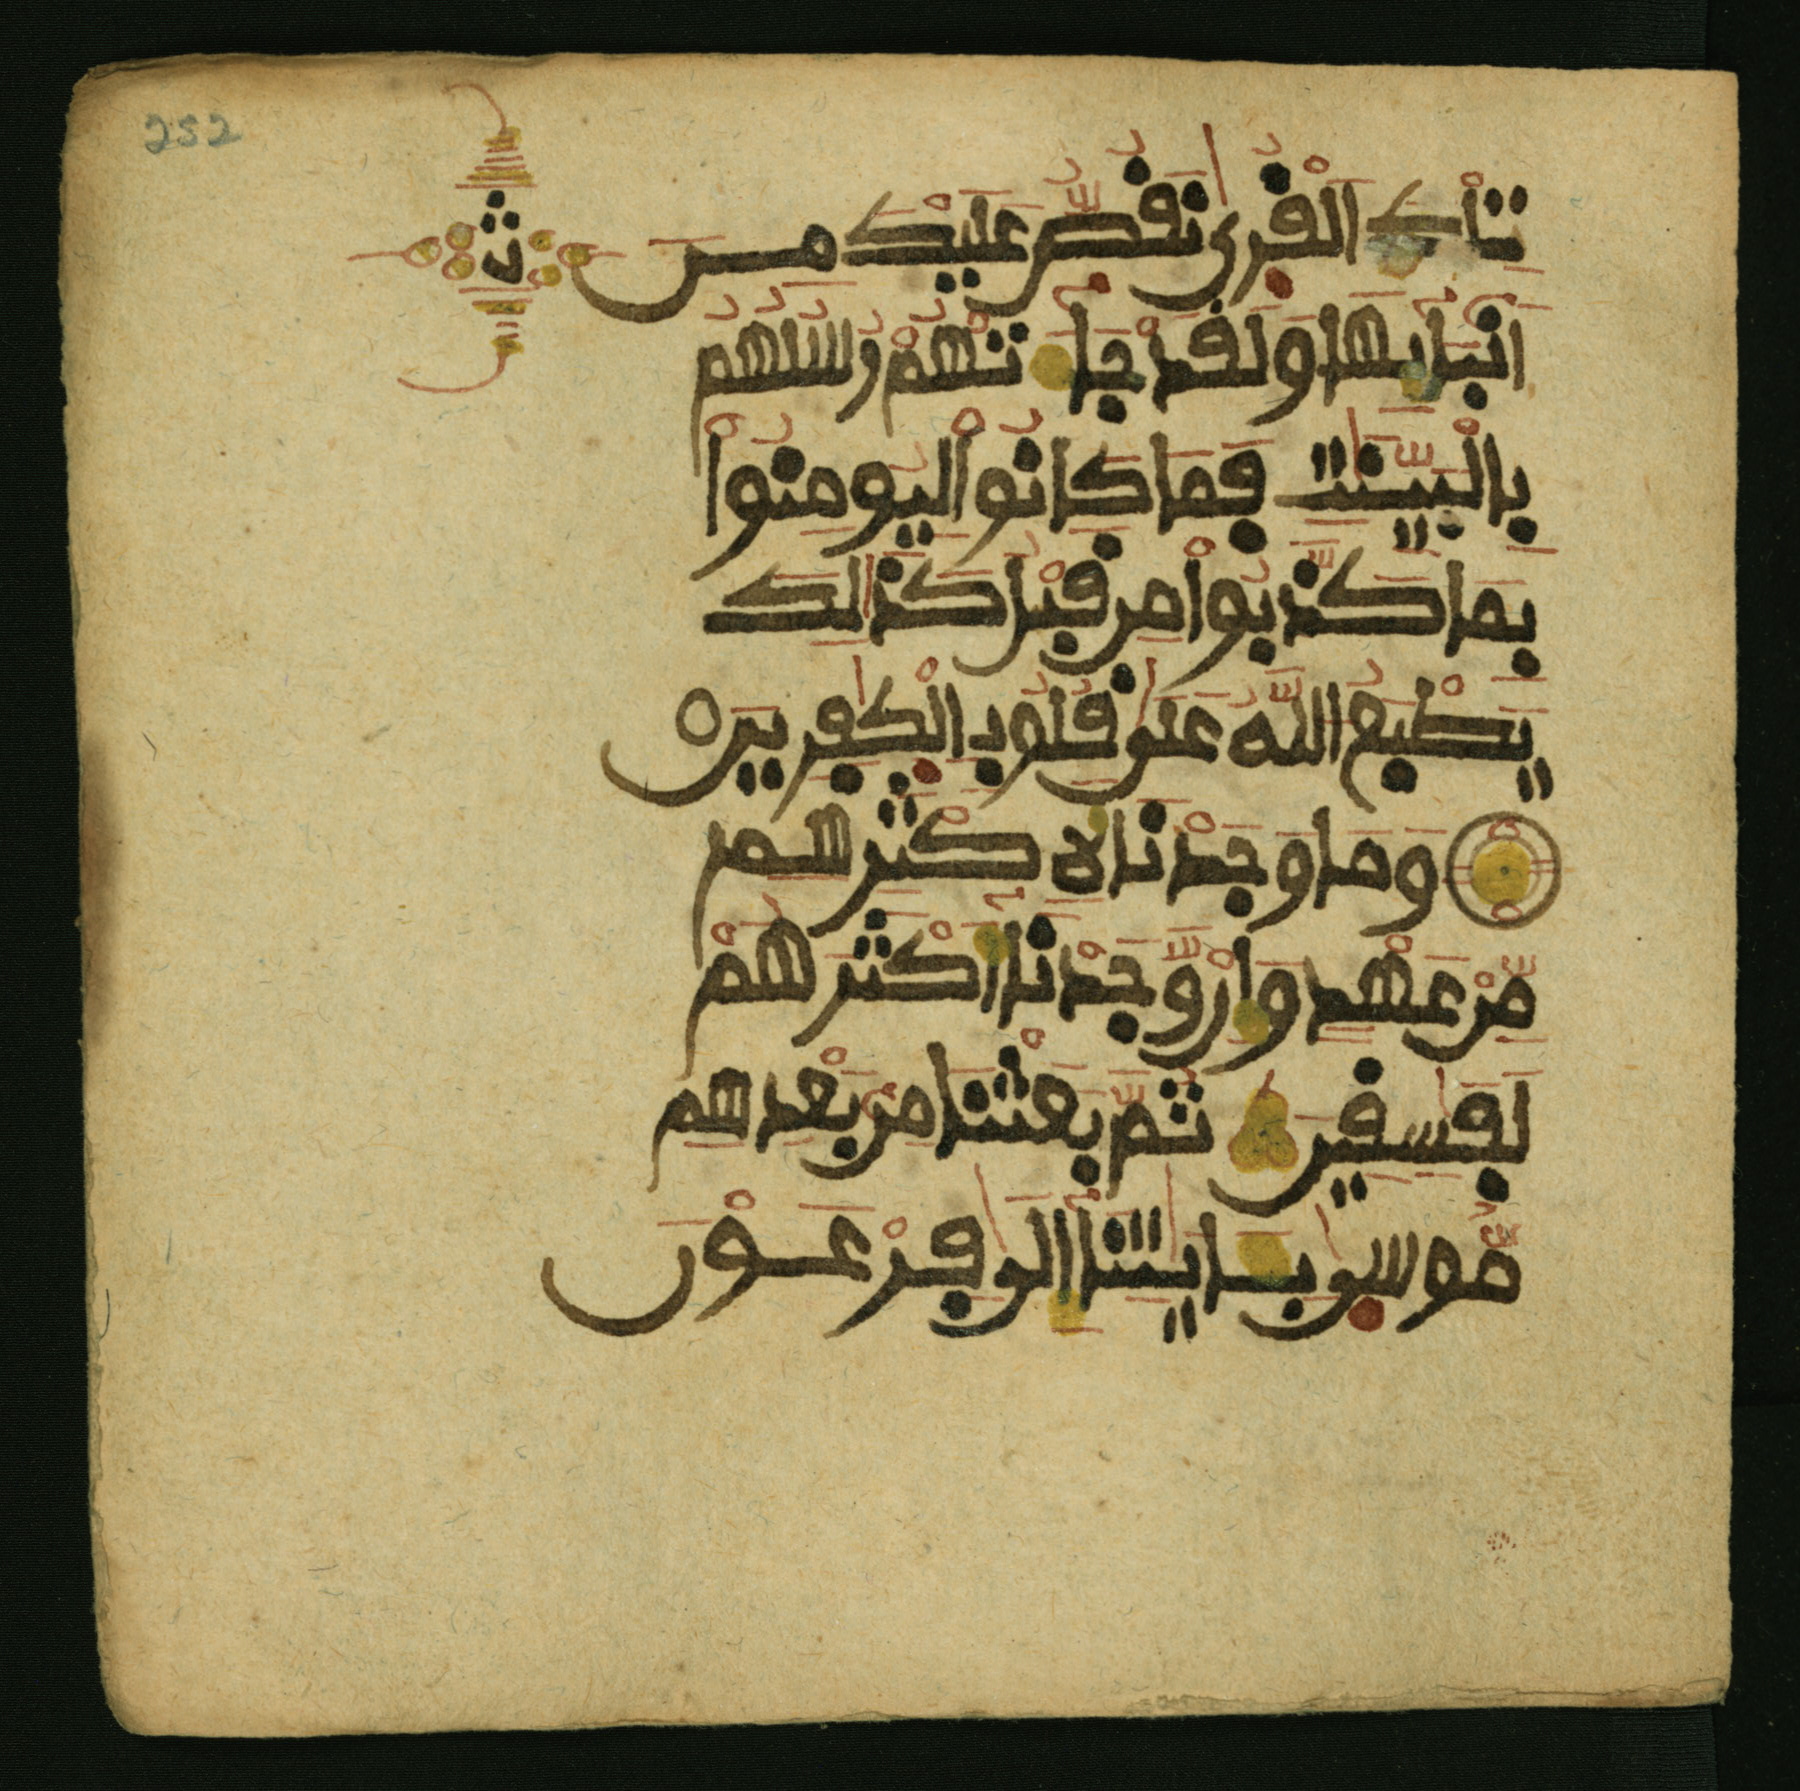 252
ث
تِلْكَ ٱلْقُرٜىٰ نَقُصُّ عَلَيْكَ مِنَ
اَنۢبَآئِهَا وَلَقَدْ جَآءَتْهُمْ رُسُلُهُم
بِالْبَيِّنَٰتِ فَمَا كَانُوا۟ لِيُومِنُوا۟
بِمَا كَذَّبُوا۟ مِن قَبْلُ كَذَٰلِكَ
يَطْبَعُ اُ۬للَّهُ عَلَىٰ قُلُوبِ اِ۬لْكٰ۪فِرِينَ
وَمَا وَجَدْنَا لِأَكْثَرِهِم
مِّنْ عَهْدٍ وَإِنْ وَّجَدْنَآ أَكْثَرَهُمْ
لَفَٰسِقِينَ ثُمَّ بَعَثْنَا مِنۢ بَعْدِهِم
مُّوس۪ىٰ بِـَٔايَٰتِنَآ إِلَىٰ فِرْعَوْنَ